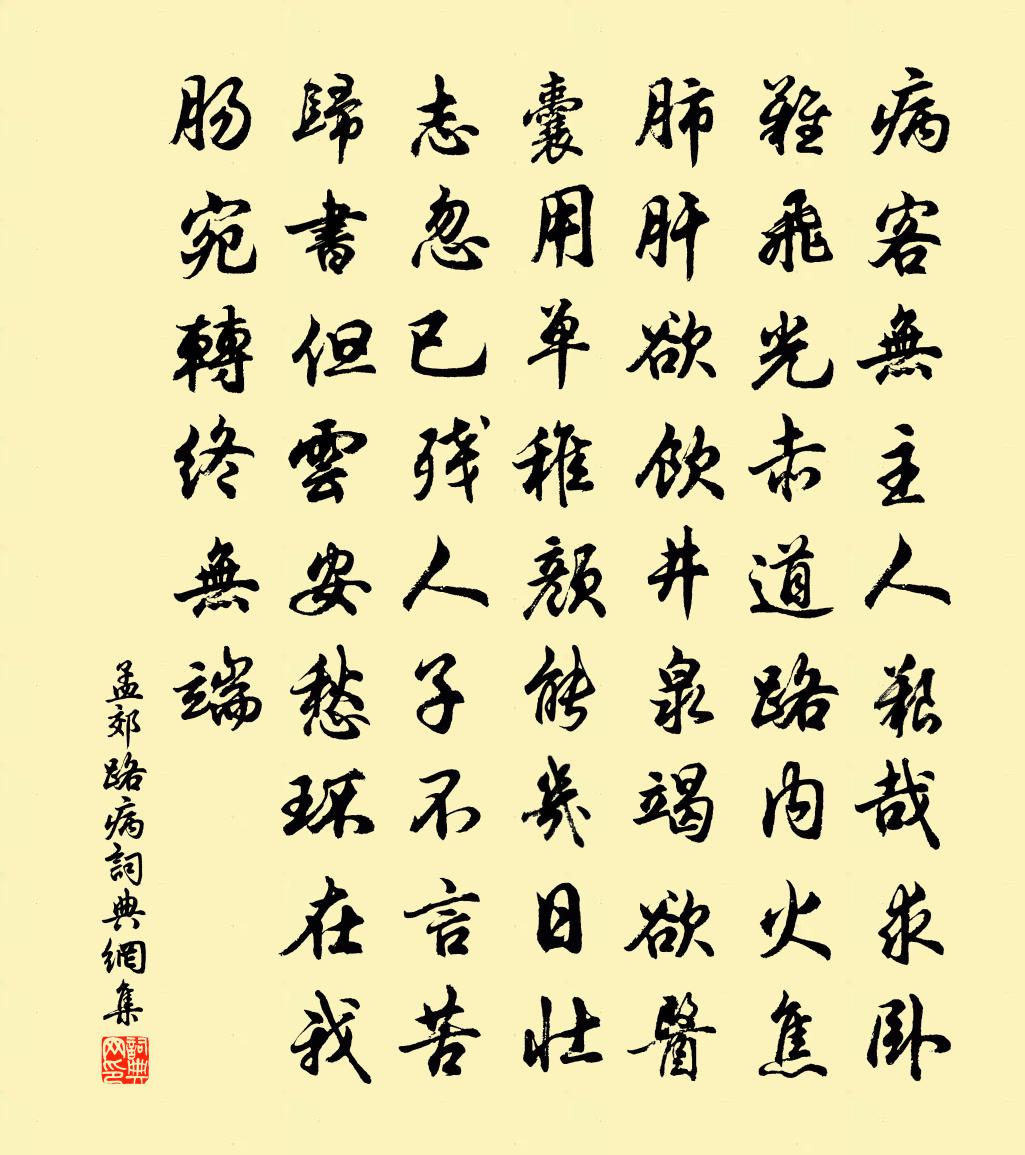 病客無主人艱哉求卧
難飛光赤道路内火焦
肺肝欲飲井泉竭欲醫
囊用单稚顔能幾日壮
志忽已残人子不言苦
歸書但雲安愁環在我
肠宛轉终無端
孟郊路病詞典網集